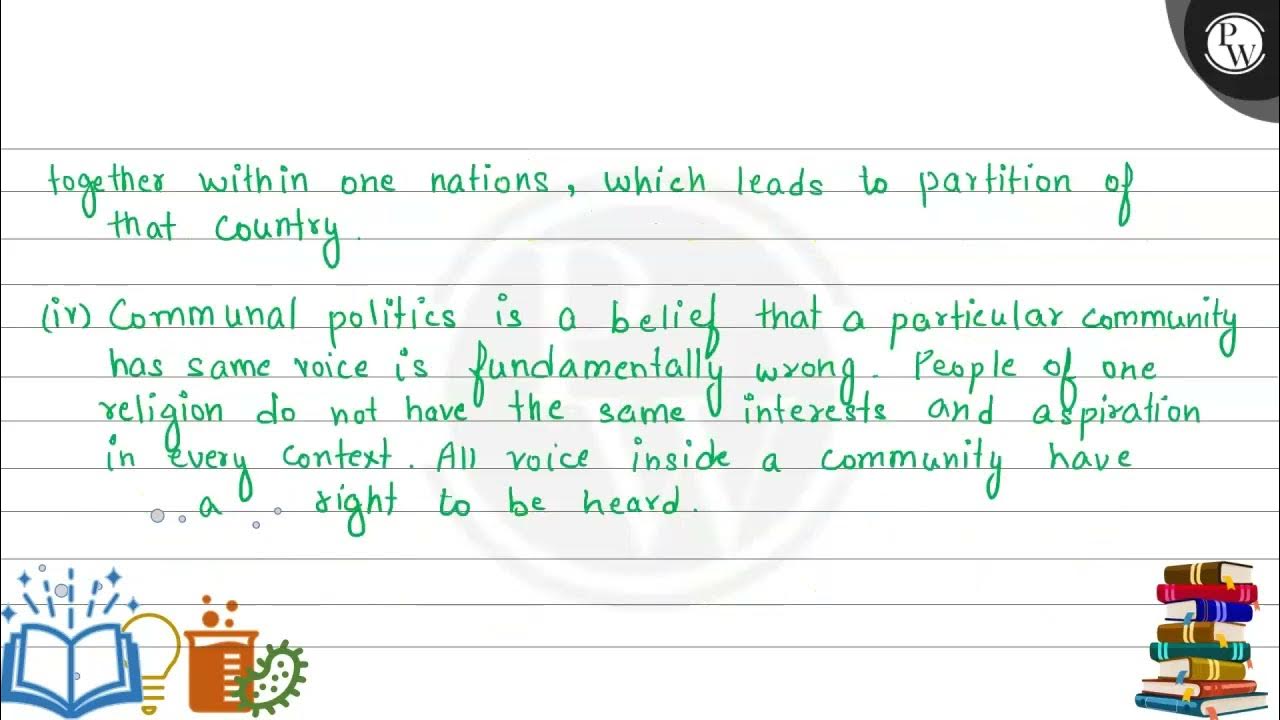 PW
together within one nations, which leads to partition of
that country.
(iv) Communal politics is a belief that a particular community
has same voice is fundamentally wrong. People of one
religion do not have the same interests and aspiration
in every context. All voice inside a community have
a right to be heard.